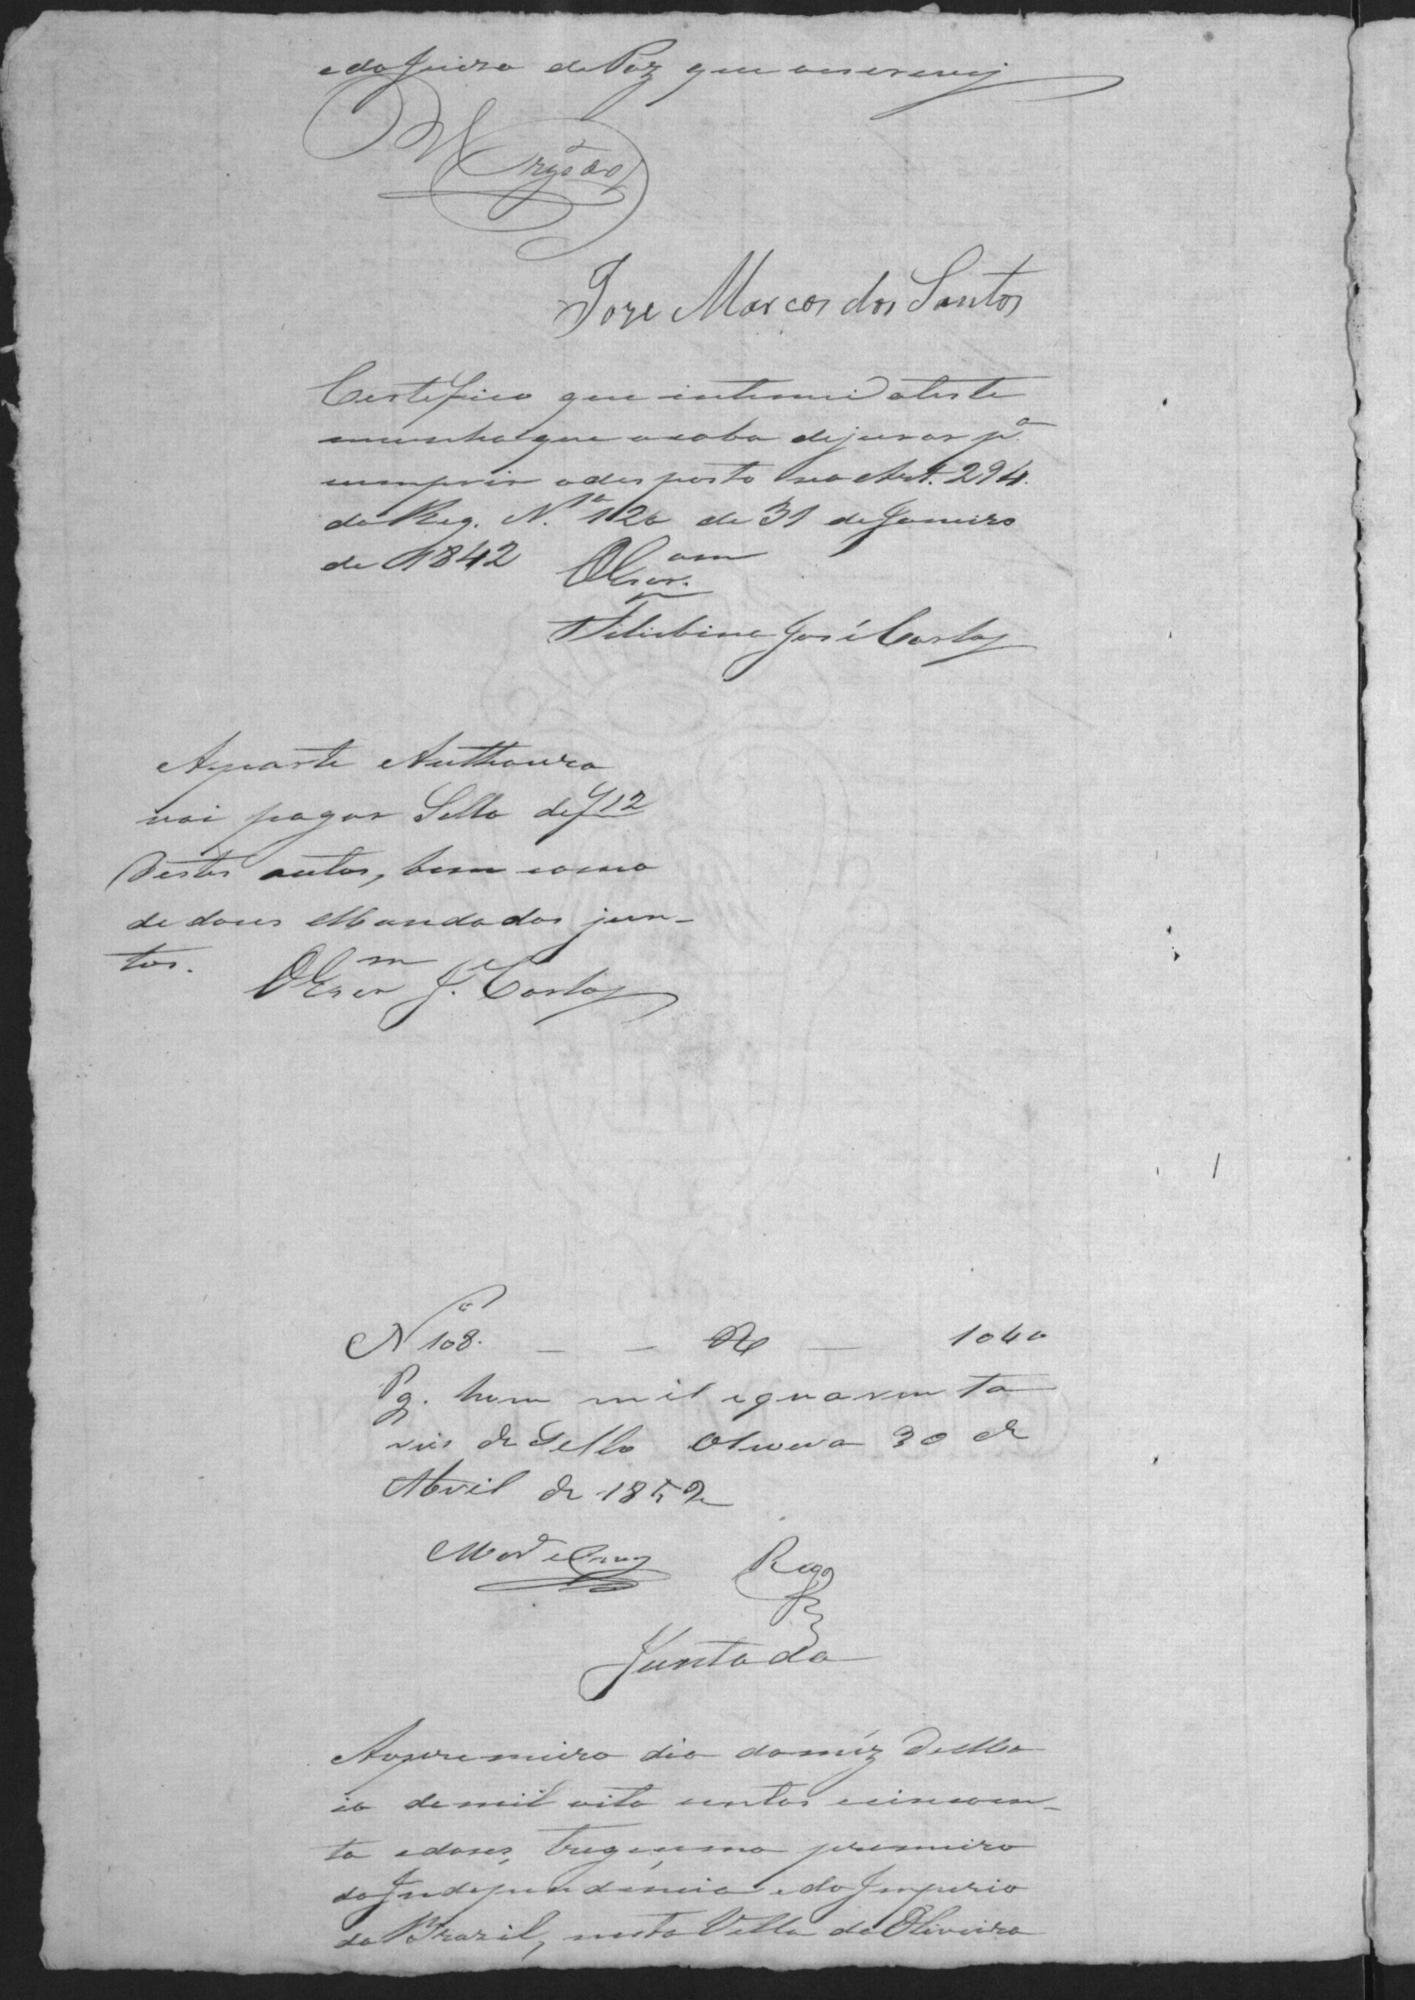 e do Juizo de Paz que escrevij
Joze Marcos dos Santos
Certifico que intimei a teste
munha que acaba de jurar p.ª
cumprir o desposto no Art. 294.
do Reg. N.º 120 de 31 de Janeiro
de 1842 O Escr.am
Felisbino José Carlos
A parte Authoura
vai pagar Sello de f 12
destes autos, bem como
de dous Mandados jun-
tos. O Escr.m J.e Carlos
N.º 108. — — R — 1040
Pg. hum mil e quarenta
reis de Sello Oliveira 30 de
Abril de 1852
Rego
Juntada
Ao premeiro dia do méz de Ma
io de mil oito centos e cincoen-
ta e doues, tregesimo premeiro
da Independencia e do Imperio
do Brazil, nesta Villa de Oliveira